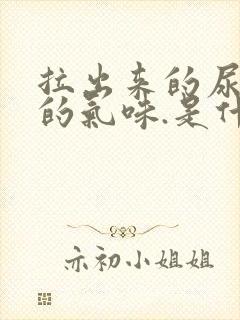 拉出来的尿
的氣味.是什
亦初小姐姐